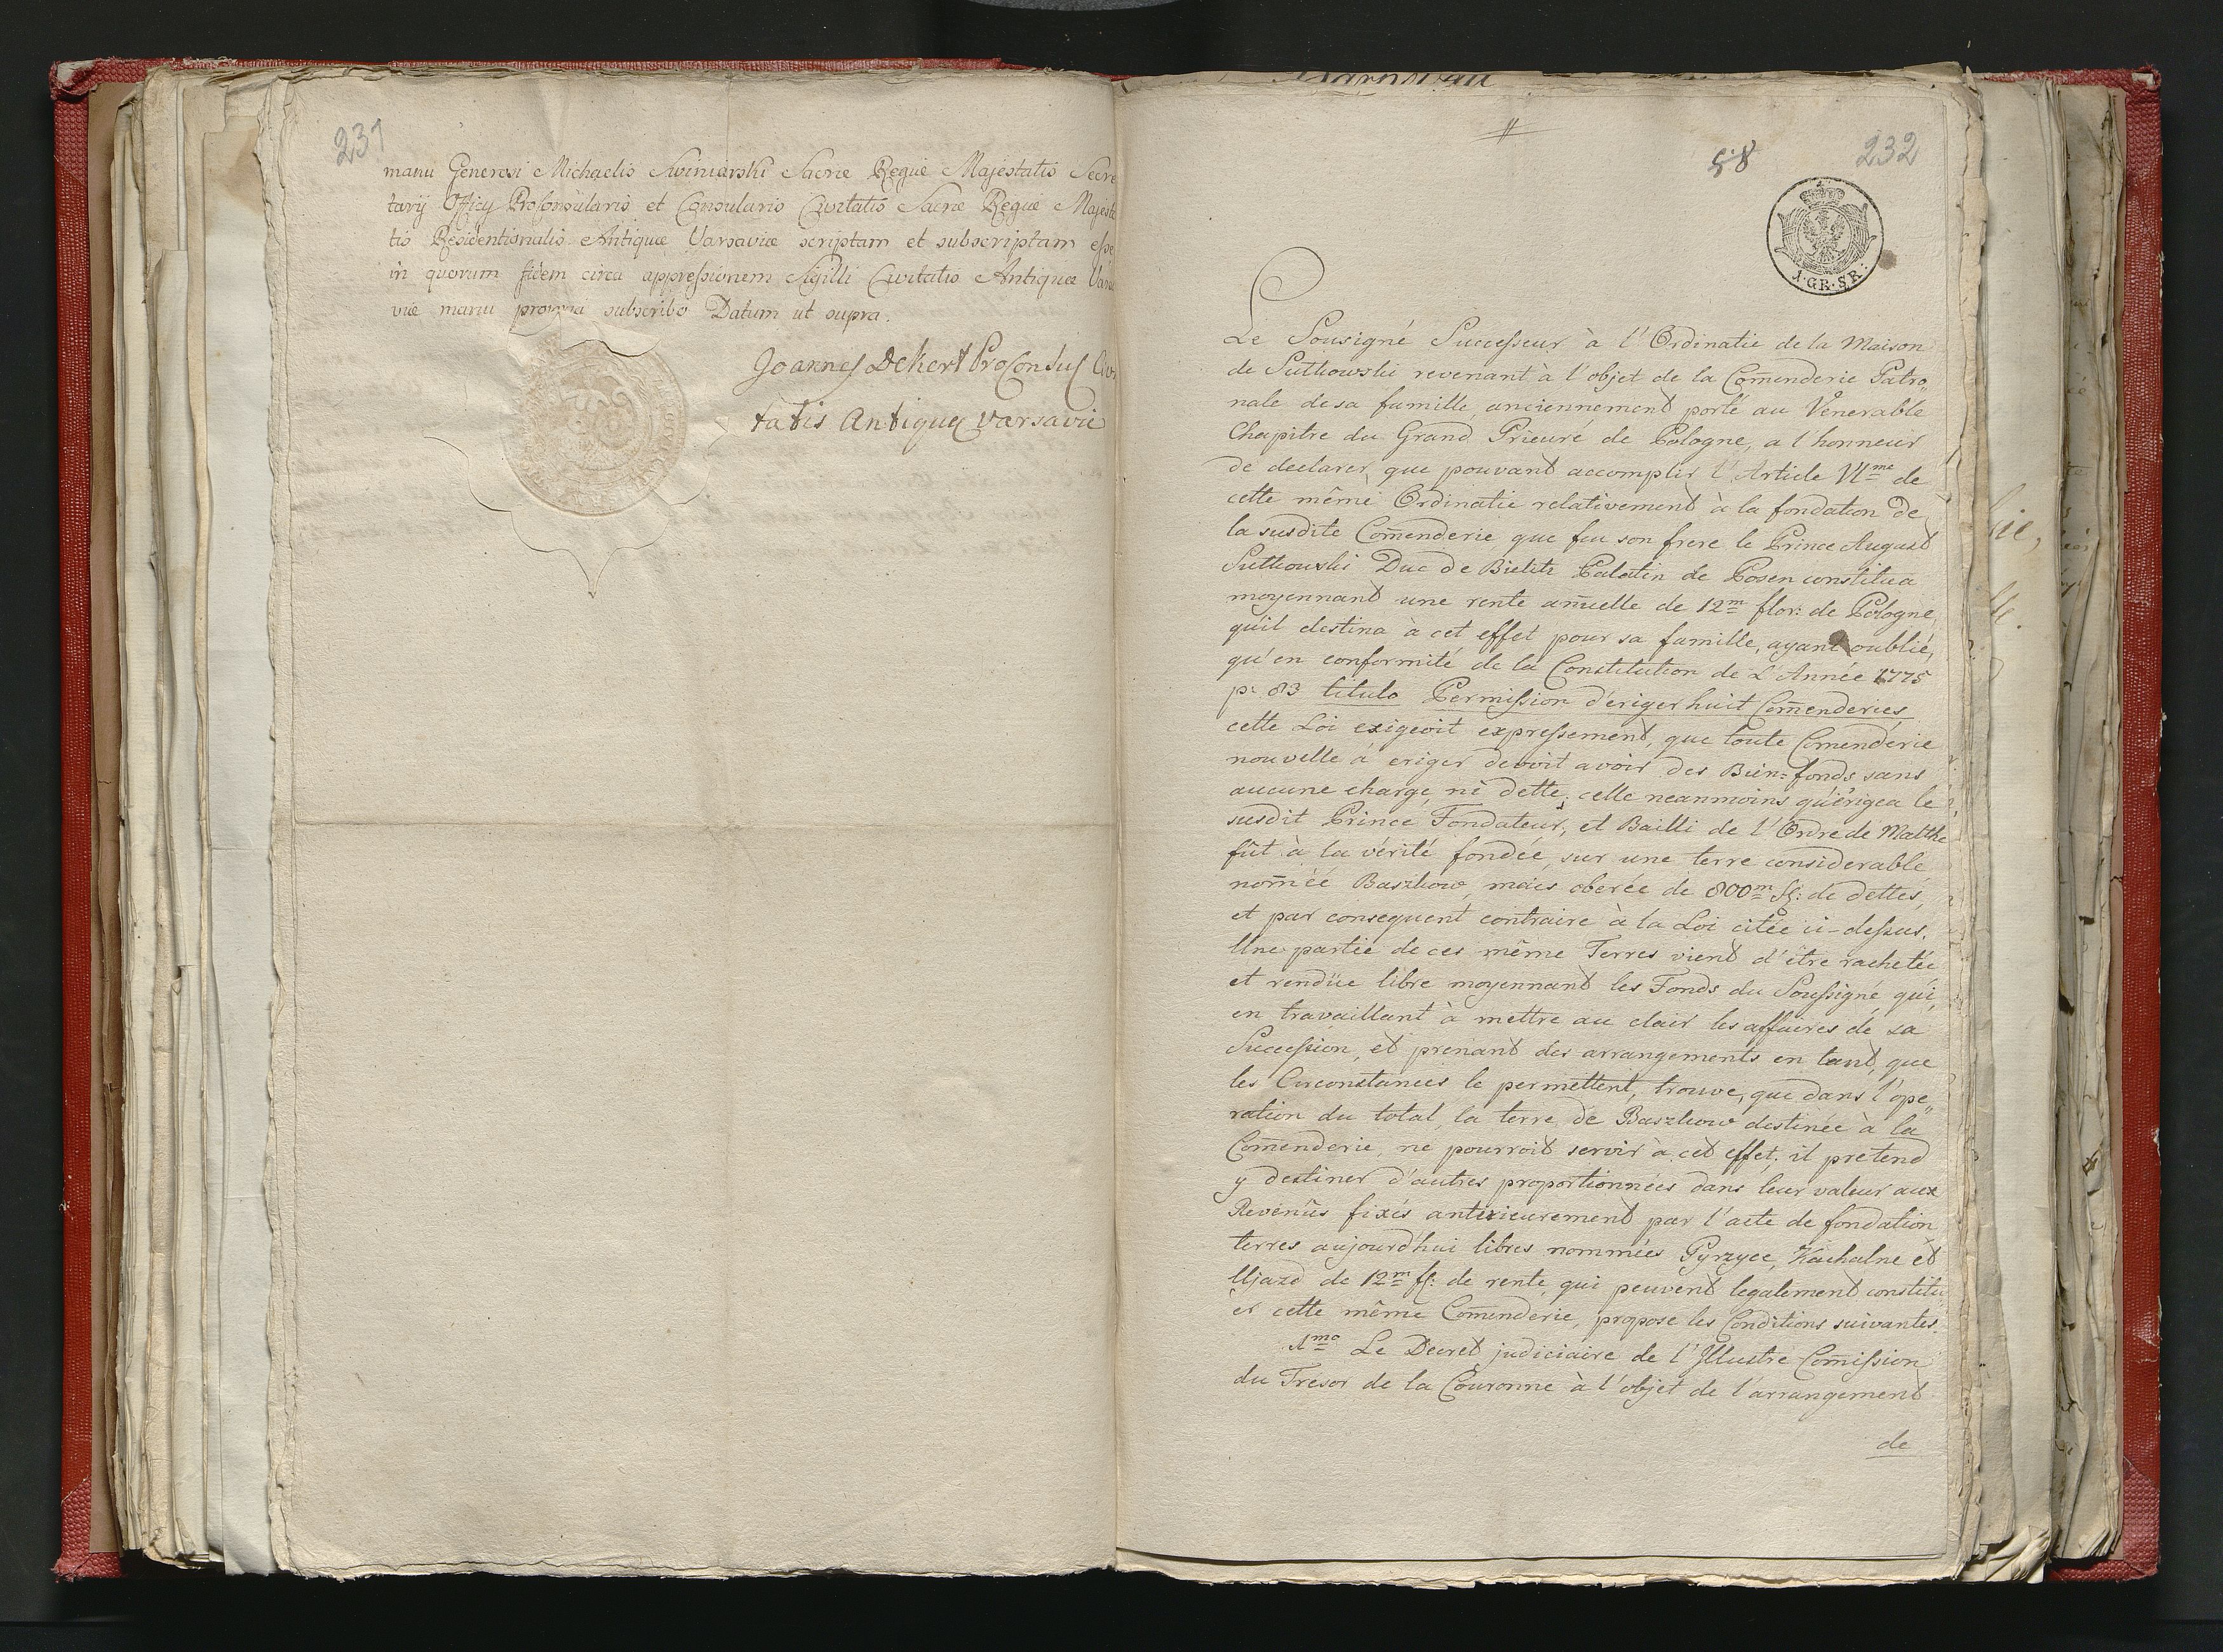 231
manu Generosi Michaelis Swiniarski Sacræ Regiæ Majestatis Secre
tarij Officij Proconsularis et Consularis Civitatis Sacræ Regiæ Majesta
tis Residentionalis Antiquæ Varsaviæ scriptam et subscriptam esse
in quorum fidem circa appressionem Sigilli Civitatis Antiquæ Varsa
viæ manu propria subscribo Datum ut supra.
Joannes Dekert ProConsul Civi
tatis Antiquæ Varsavie
58
232
1·GR·SR:
Le Sousigné Successeur à l'Ordinatie de la Maison
de Sutkowski revenant à l'objet de la Com̄enderie Patro
nale de sa famille, anciennement porté au Venerable
Chapitre du Grand Prieuré de Pologne, a l'honneur
de declarer, que pouvant accomplir l'Article VI me de
cette même Ordinatie relativement à la fondation de
la susdite Com̄enderie, que feu son frere le Prince August
Sutkowski Duc de Bielitz Palatin de Posen constitua
moyennant une rente añuelle de 12 m flor: de Pologne,
qu'il destina à cet effet pour sa famille, ayant oublié,
qu'en conformité de la Constitution de L'Année 1775
p. 83 titulo Permission d'ériger huit Com̄enderies
cette Loi exigeoit expressement, que toute Com̄enderie
nouvelle à eriger devoit avoir des Bien=fonds sans
aucune charge ni dette; celle neanmoins qu'érigea le
susdit Prince Fondateur, et Bailli de l'Ordre de Malthe
fût à la vérité fondée, sur une terre considerable
nom̄éé Baszkow, mais oberée de 800 m fl: de dettes,
et par consequent contraire à la Loi citée ci-dessus.
Une partie de ces même Terres vient d'être rachetée
et rendüe libre moyennant les Fonds du Soussigné, qui,
en travaillant à mettre au clair les affaires de sa
Succession, et prenant des arrangements en tant, que
les Circonstances le permettent, trouve, que dans l'opé
ration du total, la terre de Baszkow destinée à la
Com̄enderie, ne pourroit servir à cet effet; il pretend
y destiner d'autres proportionnées dans leur valeur aux
Revenûs fixés anterieurement par l'acte de fondation
terres aujourd'hui libres nommées Pyrzyce, Kachalne et
Ujazd de 12 m fl: de rente, qui peuvent legalement constitu
er cette même Com̄enderie, propose les Conditions suivantes.
1 mo Le Decret judiciaire de l'Illustre Com̄ission
du Trésor de la Couronne à l'objet de l'arrangement
de